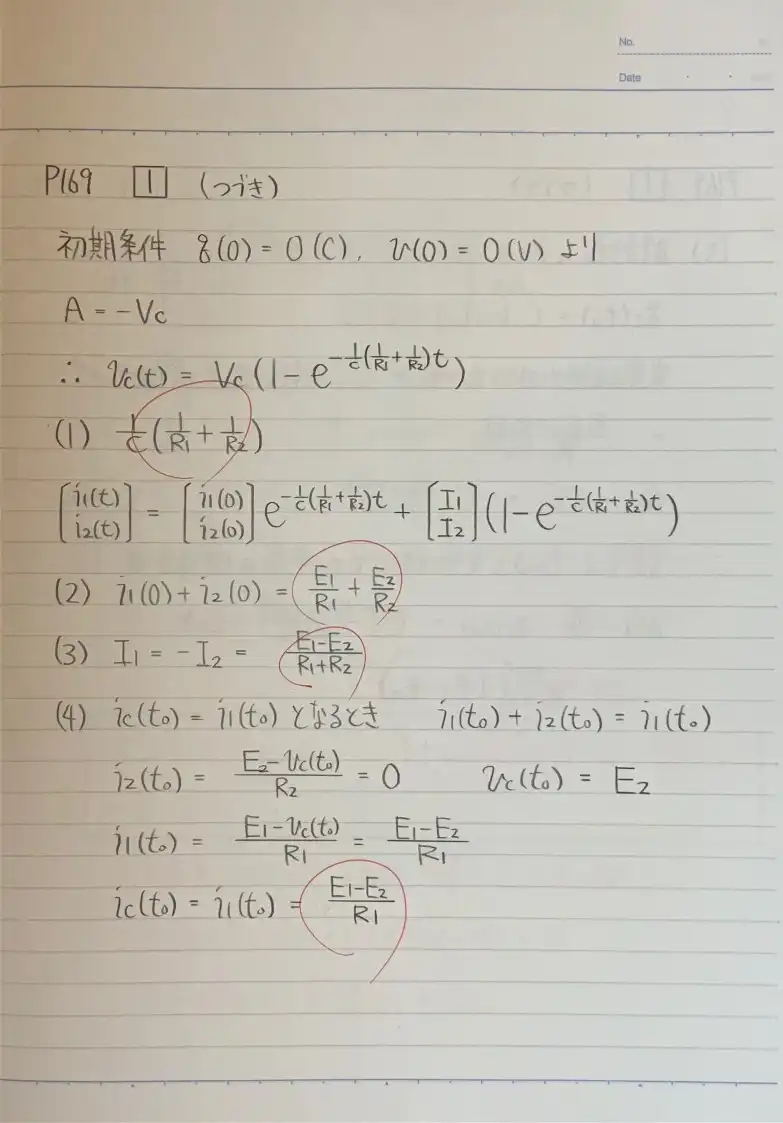 No.
Date
P169 1 (つづき)
初期条件 q(0) = 0 (C), v(0) = 0 (V) より
A = -Vc
∴ vc(t) = Vc (1 - e^{-\frac{1}{C}(\frac{1}{R1}+\frac{1}{R2})t})
(1) \frac{1}{C}(\frac{1}{R1} + \frac{1}{R2})
[i1(t) i2(t)] = [i1(0) i2(0)] e^{-\frac{1}{C}(\frac{1}{R1}+\frac{1}{R2})t} + [I1 I2] (1 - e^{-\frac{1}{C}(\frac{1}{R1}+\frac{1}{R2})t})
(2) i1(0) + i2(0) = \frac{E1}{R1} + \frac{E2}{R2}
(3) I1 = -I2 = \frac{E1-E2}{R1+R2}
(4) ic(t0) = i1(t0) となるとき i1(t0) + i2(t0) = i1(t0)
i2(t0) = \frac{E2-vc(t0)}{R2} = 0 vc(t0) = E2
i1(t0) = \frac{E1-vc(t0)}{R1} = \frac{E1-E2}{R1}
ic(t0) = i1(t0) = \frac{E1-E2}{R1}